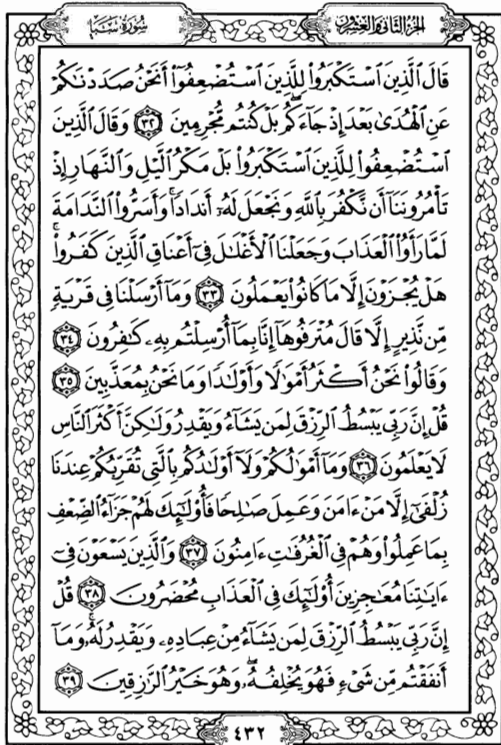 الجزء الثاني والعشرون
سورة سبأ
قَالَ الَّذِينَ اسْتَكْبَرُوا لِلَّذِينَ اسْتُضْعِفُوا أَنَحْنُ صَدَدْنَاكُمْ
عَنِ الْهُدَىٰ بَعْدَ إِذْ جَاءَكُم بَلْ كُنتُم مُّجْرِمِينَ ٣٢ وَقَالَ الَّذِينَ
اسْتُضْعِفُوا لِلَّذِينَ اسْتَكْبَرُوا بَلْ مَكْرُ الَّيْلِ وَالنَّهَارِ إِذْ
تَأْمُرُونَنَا أَن نَّكْفُرَ بِاللَّهِ وَنَجْعَلَ لَهُ أَندَادًا وَأَسَرُّوا النَّدَامَةَ
لَمَّا رَأَوُا الْعَذَابَ وَجَعَلْنَا الْأَغْلَالَ فِي أَعْنَاقِ الَّذِينَ كَفَرُوا
هَلْ يُجْزَوْنَ إِلَّا مَا كَانُوا يَعْمَلُونَ ٣٣ وَمَا أَرْسَلْنَا فِي قَرْيَةٍ
مِّن نَّذِيرٍ إِلَّا قَالَ مُتْرَفُوهَا إِنَّا بِمَا أُرْسِلْتُم بِهِ كَافِرُونَ ٣٤
وَقَالُوا نَحْنُ أَكْثَرُ أَمْوَالًا وَأَوْلَادًا وَمَا نَحْنُ بِمُعَذَّبِينَ ٣٥
قُلْ إِنَّ رَبِّي يَبْسُطُ الرِّزْقَ لِمَن يَشَاءُ وَيَقْدِرُ وَلَٰكِنَّ أَكْثَرَ النَّاسِ
لَا يَعْلَمُونَ ٣٦ وَمَا أَمْوَالُكُمْ وَلَا أَوْلَادُكُم بِالَّتِي تُقَرِّبُكُمْ عِندَنَا
زُلْفَىٰ إِلَّا مَنْ ءَامَنَ وَعَمِلَ صَالِحًا فَأُولَٰئِكَ لَهُمْ جَزَاءُ الضِّعْفِ
بِمَا عَمِلُوا وَهُمْ فِي الْغُرُفَاتِ ءَامِنُونَ ٣٧ وَالَّذِينَ يَسْعَوْنَ فِي
ءَايَاتِنَا مُعَاجِزِينَ أُولَٰئِكَ فِي الْعَذَابِ مُحْضَرُونَ ٣٨ قُلْ
إِنَّ رَبِّي يَبْسُطُ الرِّزْقَ لِمَن يَشَاءُ مِنْ عِبَادِهِ وَيَقْدِرُ لَهُ وَمَا
أَنفَقْتُم مِّن شَيْءٍ فَهُوَ يُخْلِفُهُ وَهُوَ خَيْرُ الرَّازِقِينَ ٣٩
٤٣٢